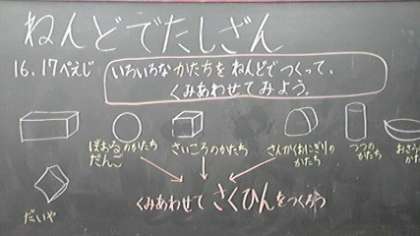 ねんどでたしざん
16.17ぺえじ
いろいろなかたちをねんどでつくって、
くみあわせてみよう。
ぼおるのかたち
だんご
さいころのかたち
さんかくおにぎりの
かたち
つつの
かたち
おさら
かたち
だいや
くみあわせてさくひんをつくろう